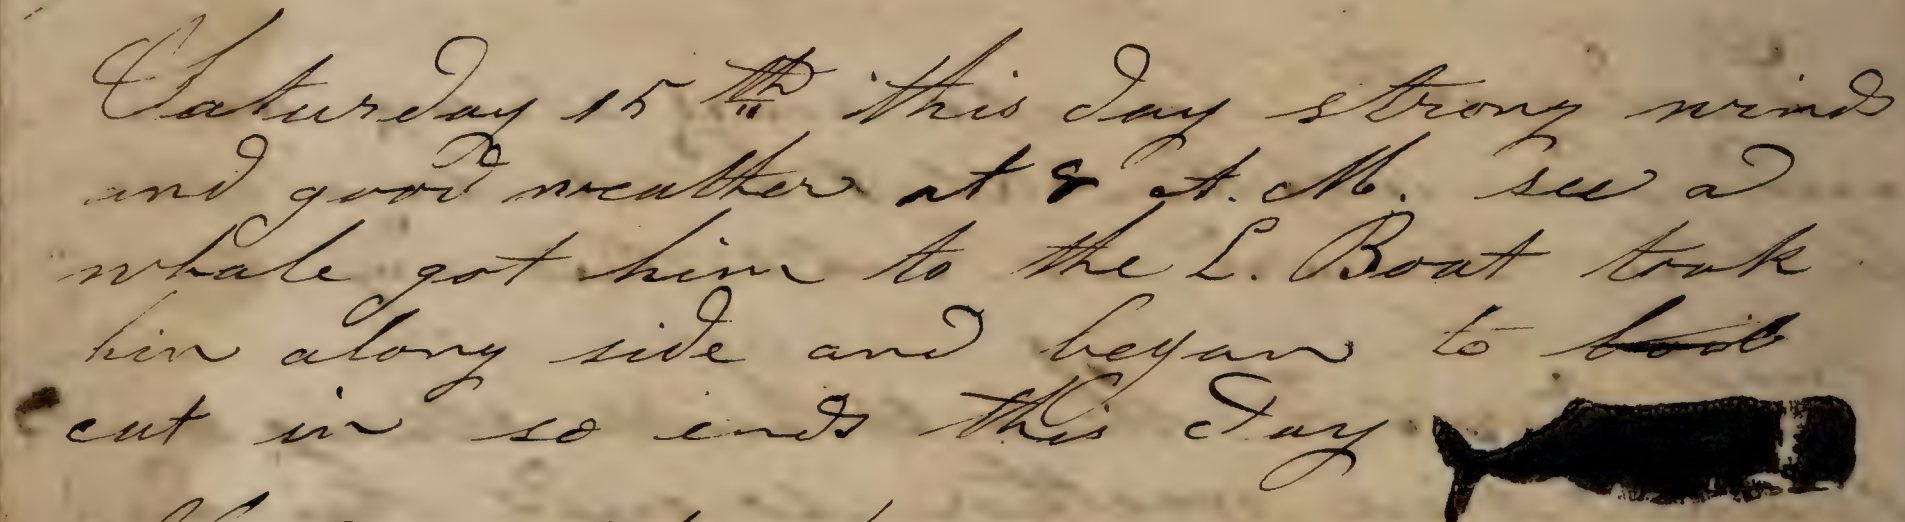 Saturday 15th this day strong winds
and good weather at 8 A.M. see a
whale got him to the L. Boat took
him along side and began to boil
cut in so ends this day